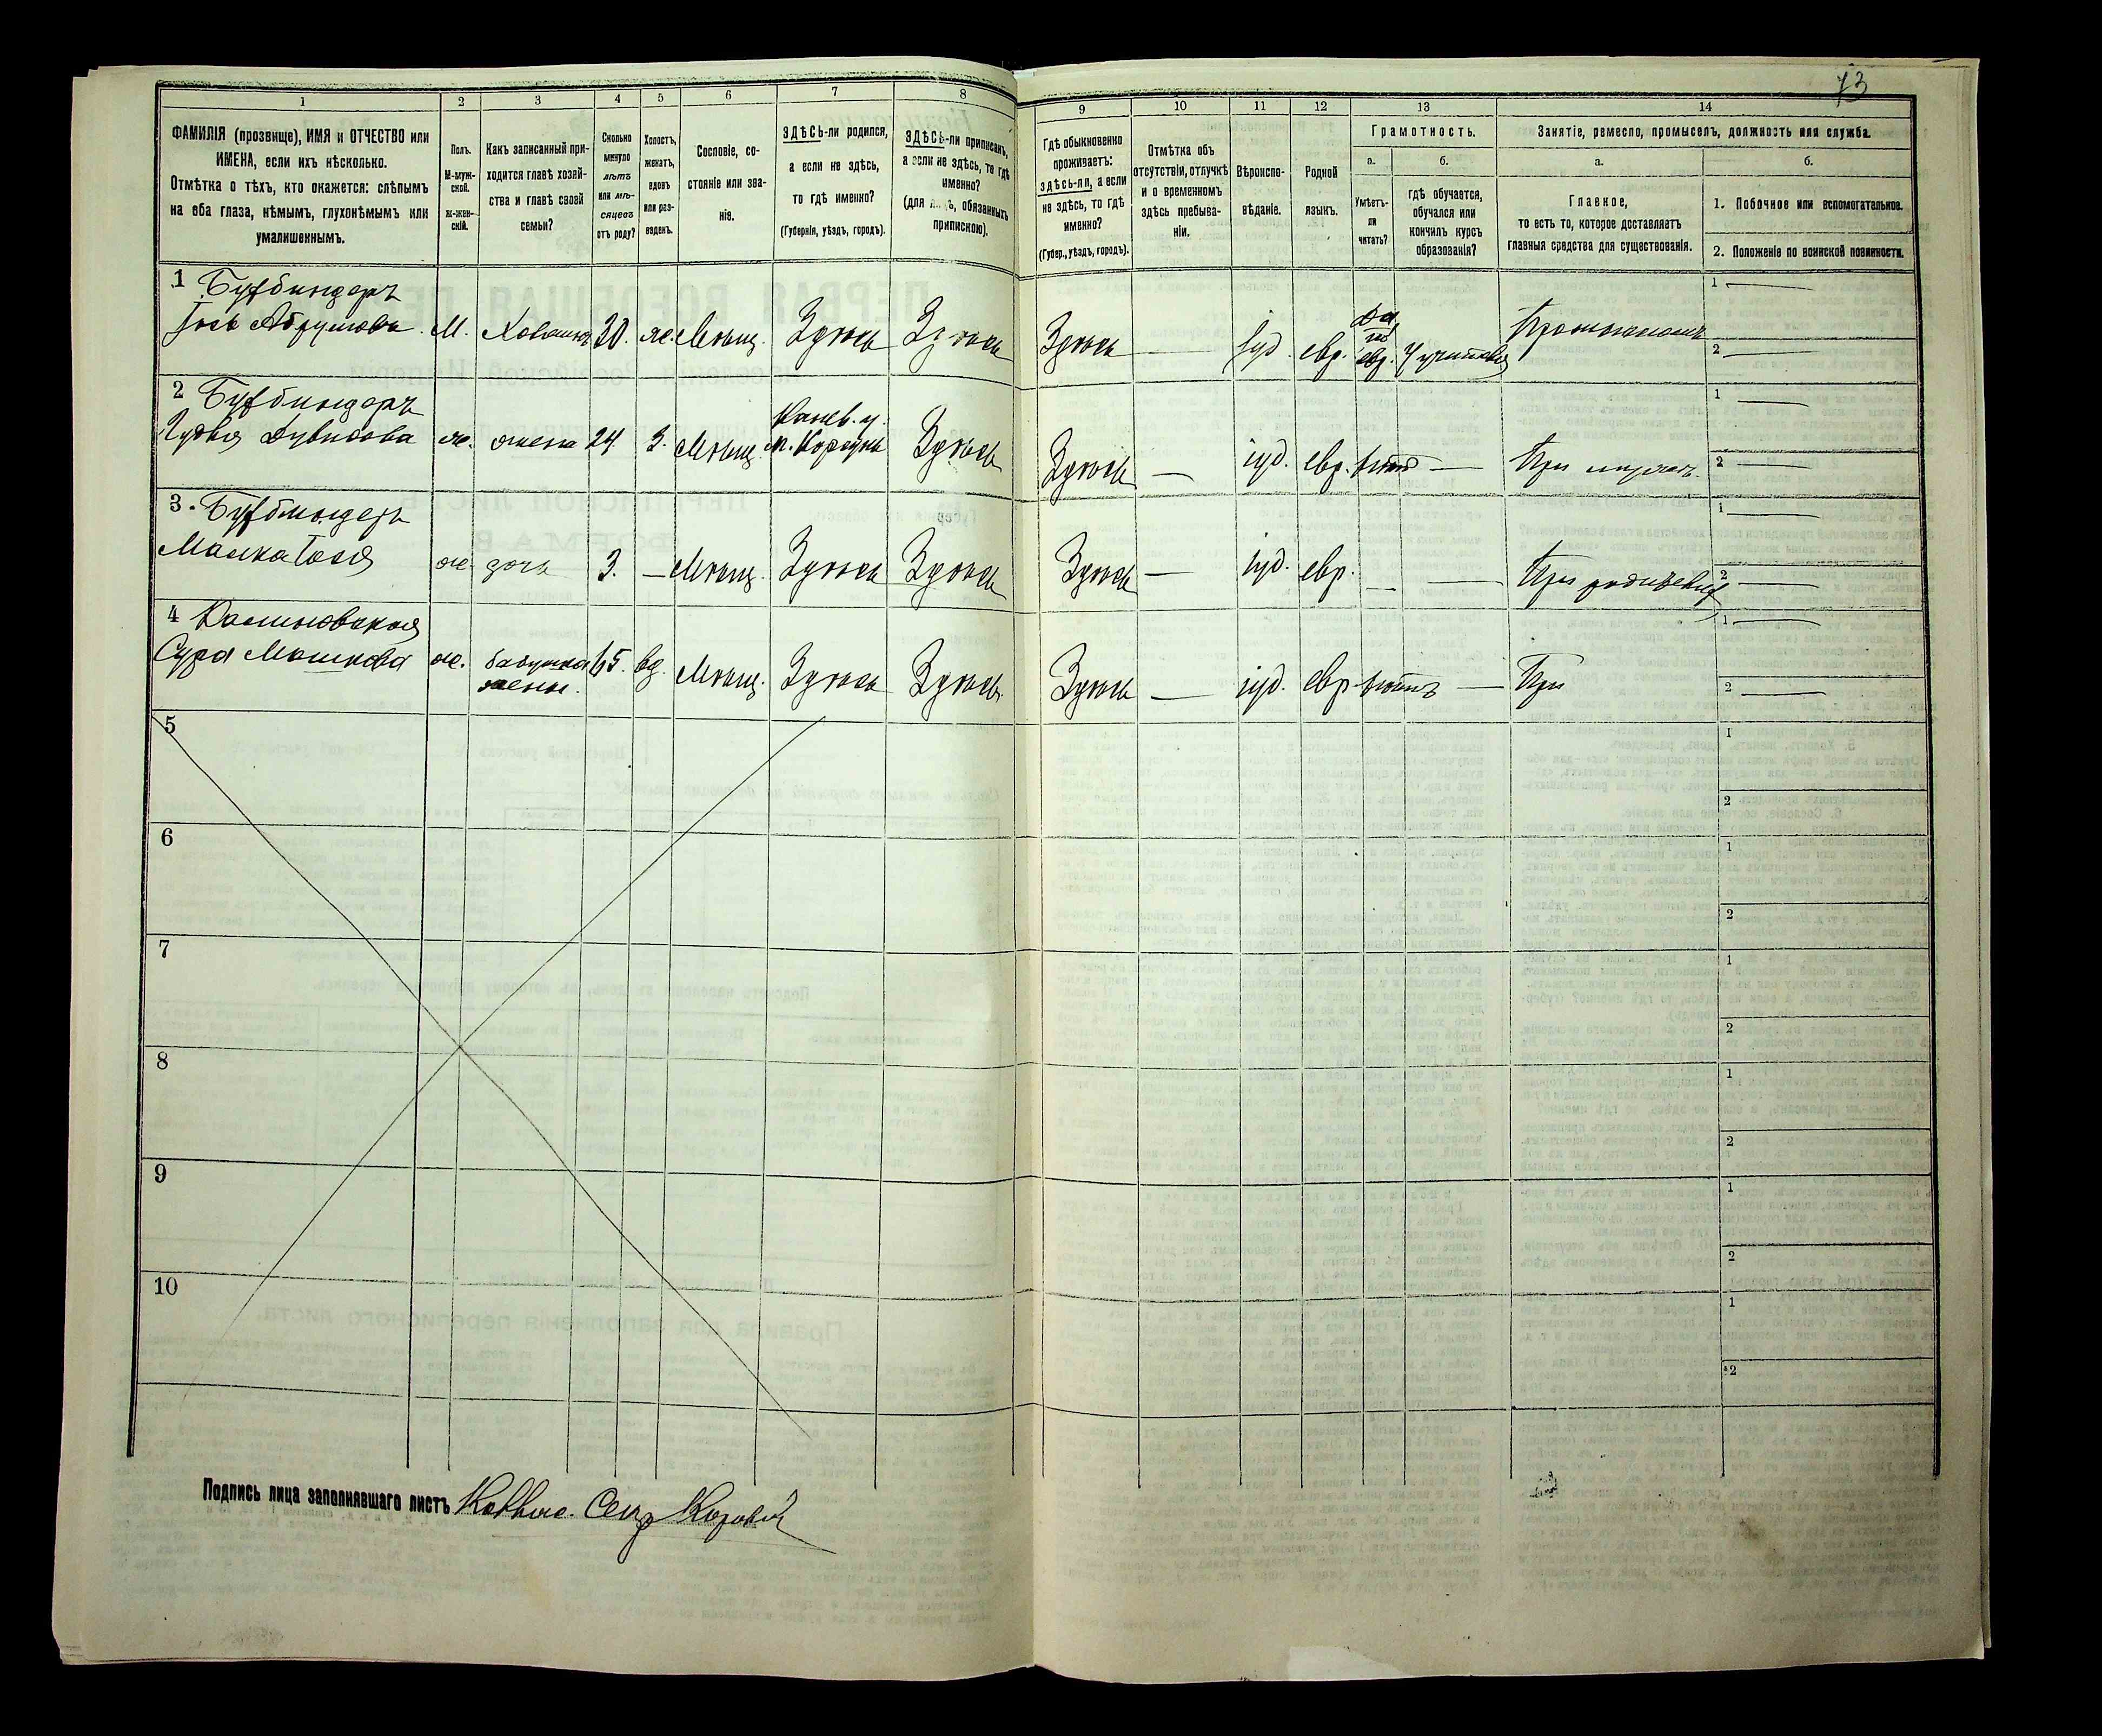 73
1
2
3
4
5
6
7
8
9
10
11
12
13
14
ФАМИЛІЯ (прозвище), ИМЯ и ОТЧЕСТВО или
ИМЕНА, если ихъ нѣсколько.
Отмѣтка о тѣхъ, кто окажется: слѣпымъ
на оба глаза, нѣмымъ, глухонѣмымъ или
умалишеннымъ.
Полъ.
М-муж-
ской.
ж-жен-
скій.
Какъ записанный при-
ходится главѣ хозяй-
ства и главѣ своей
семьи?
Сколько
минуло
лѣтъ
или мѣ-
сяцевъ
отъ роду?
Холостъ,
женатъ,
вдовъ
или раз-
веденъ.
Сословіе, со-
стояніе или зва-
ніе.
ЗДѢСЬ-ли родился,
а если не здѣсь,
то гдѣ именно?
(Губернія, уѣздъ, городъ).
ЗДѢСЬ-ли приписанъ,
а если не здѣсь, то гдѣ
именно?
(для лицъ, обязанныхъ
припискою).
Гдѣ обыкновенно
проживаетъ:
здѣсь-ли, а если
не здѣсь, то гдѣ
именно?
(Губер., уѣздъ, городъ).
Отмѣтка объ
отсутствіи, отлучкѣ
и о временномъ
здѣсь пребыва-
ніи.
Вѣроиспо-
вѣданіе.
Родной
языкъ.
Грамотность.
а.
Умѣетъ-
ли
читать?
б.
гдѣ обучается,
обучался или
кончилъ курсъ
образованія?
Занятіе, ремесло, промыселъ, должность или служба.
а.
Главное,
то есть то, которое доставляетъ
главныя средства для существованія.
б.
1. Побочное или вспомогательное.
2. Положеніе по воинской повинности.
1 Бухбиндеръ
Іось Абрумовъ М. Хозяинъ 30. ж. Мѣщ. Здѣсь Здѣсь Здѣсь — Іуд. евр. Да по евр. У учителя 1 — 2 —
2 Бухбиндеръ
Дувидова ж. жена 24 З. Мѣщ. Канев. у. м. Корсунь Здѣсь Здѣсь — іуд. евр. нѣтъ — При мужѣ. 1 — 2 —
3. Бухбиндеръ
Малка Іосія ж. дочь 3. — Мѣщ. Здѣсь Здѣсь Здѣсь — іуд. евр. — — При родителяхъ 1 — 2 —
4 Калиновская
Сура Мошкова ж. бабушка жены. 65. вд. Мѣщ. Здѣсь Здѣсь Здѣсь — іуд. евр. нѣтъ — При 1 — 2 —
5 1 2
6 1 2
7 1 2
8 1 2
9 1 2
10 1 2
Подпись лица заполнявшаго листъ